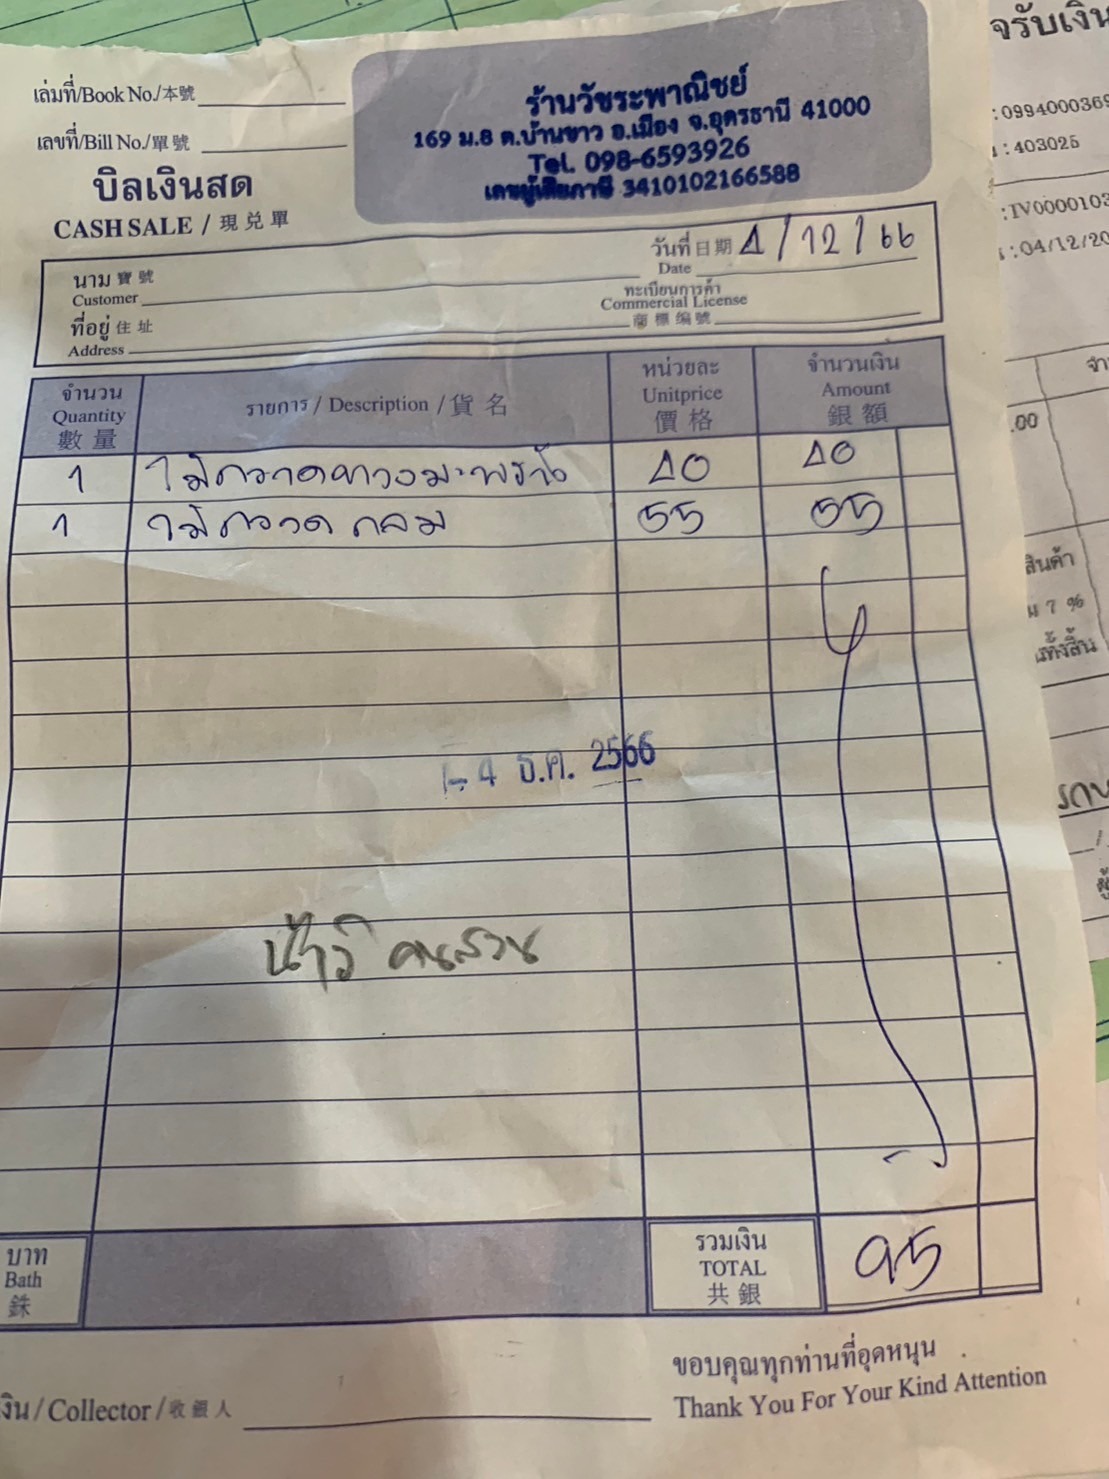 เล่มที่/Book No./本號
เลขที่/Bill No./單號
บิลเงินสด
CASH SALE / 現兑單
ร้านวัชระพาณิชย์
169 ม.8 ต.บ้านขาว อ.เมือง จ.อุดรธานี 41000
Tel. 098-6593926
เลขผู้เสียภาษี 3410102166588
วันที่ 日期 4/12/66
Date
นาม 寶號
Customer
ทะเบียนการค้า
Commercial License
商標编號
ที่อยู่ 住址
Address
จำนวน
Quantity
數量
รายการ / Description / 貨名
หน่วยละ
Unitprice
價格
จำนวนเงิน
Amount
銀額
1 ไม้กวาดทางมะพร้าว 40 40
1 ไม้กวาด กลม 55 55
- 4 ธ.ค. 2566
น้าวี คนสวน
บาท
Bath
銖
รวมเงิน
TOTAL
共銀
95
งิน / Collector / 收銀人
ขอบคุณทุกท่านที่อุดหนุน
Thank You For Your Kind Attention
จรับเงิน
:099400036
:403025
:IV0000103
:04/12/20
.00
สินค้า
7 %
ทั้งสิ้น